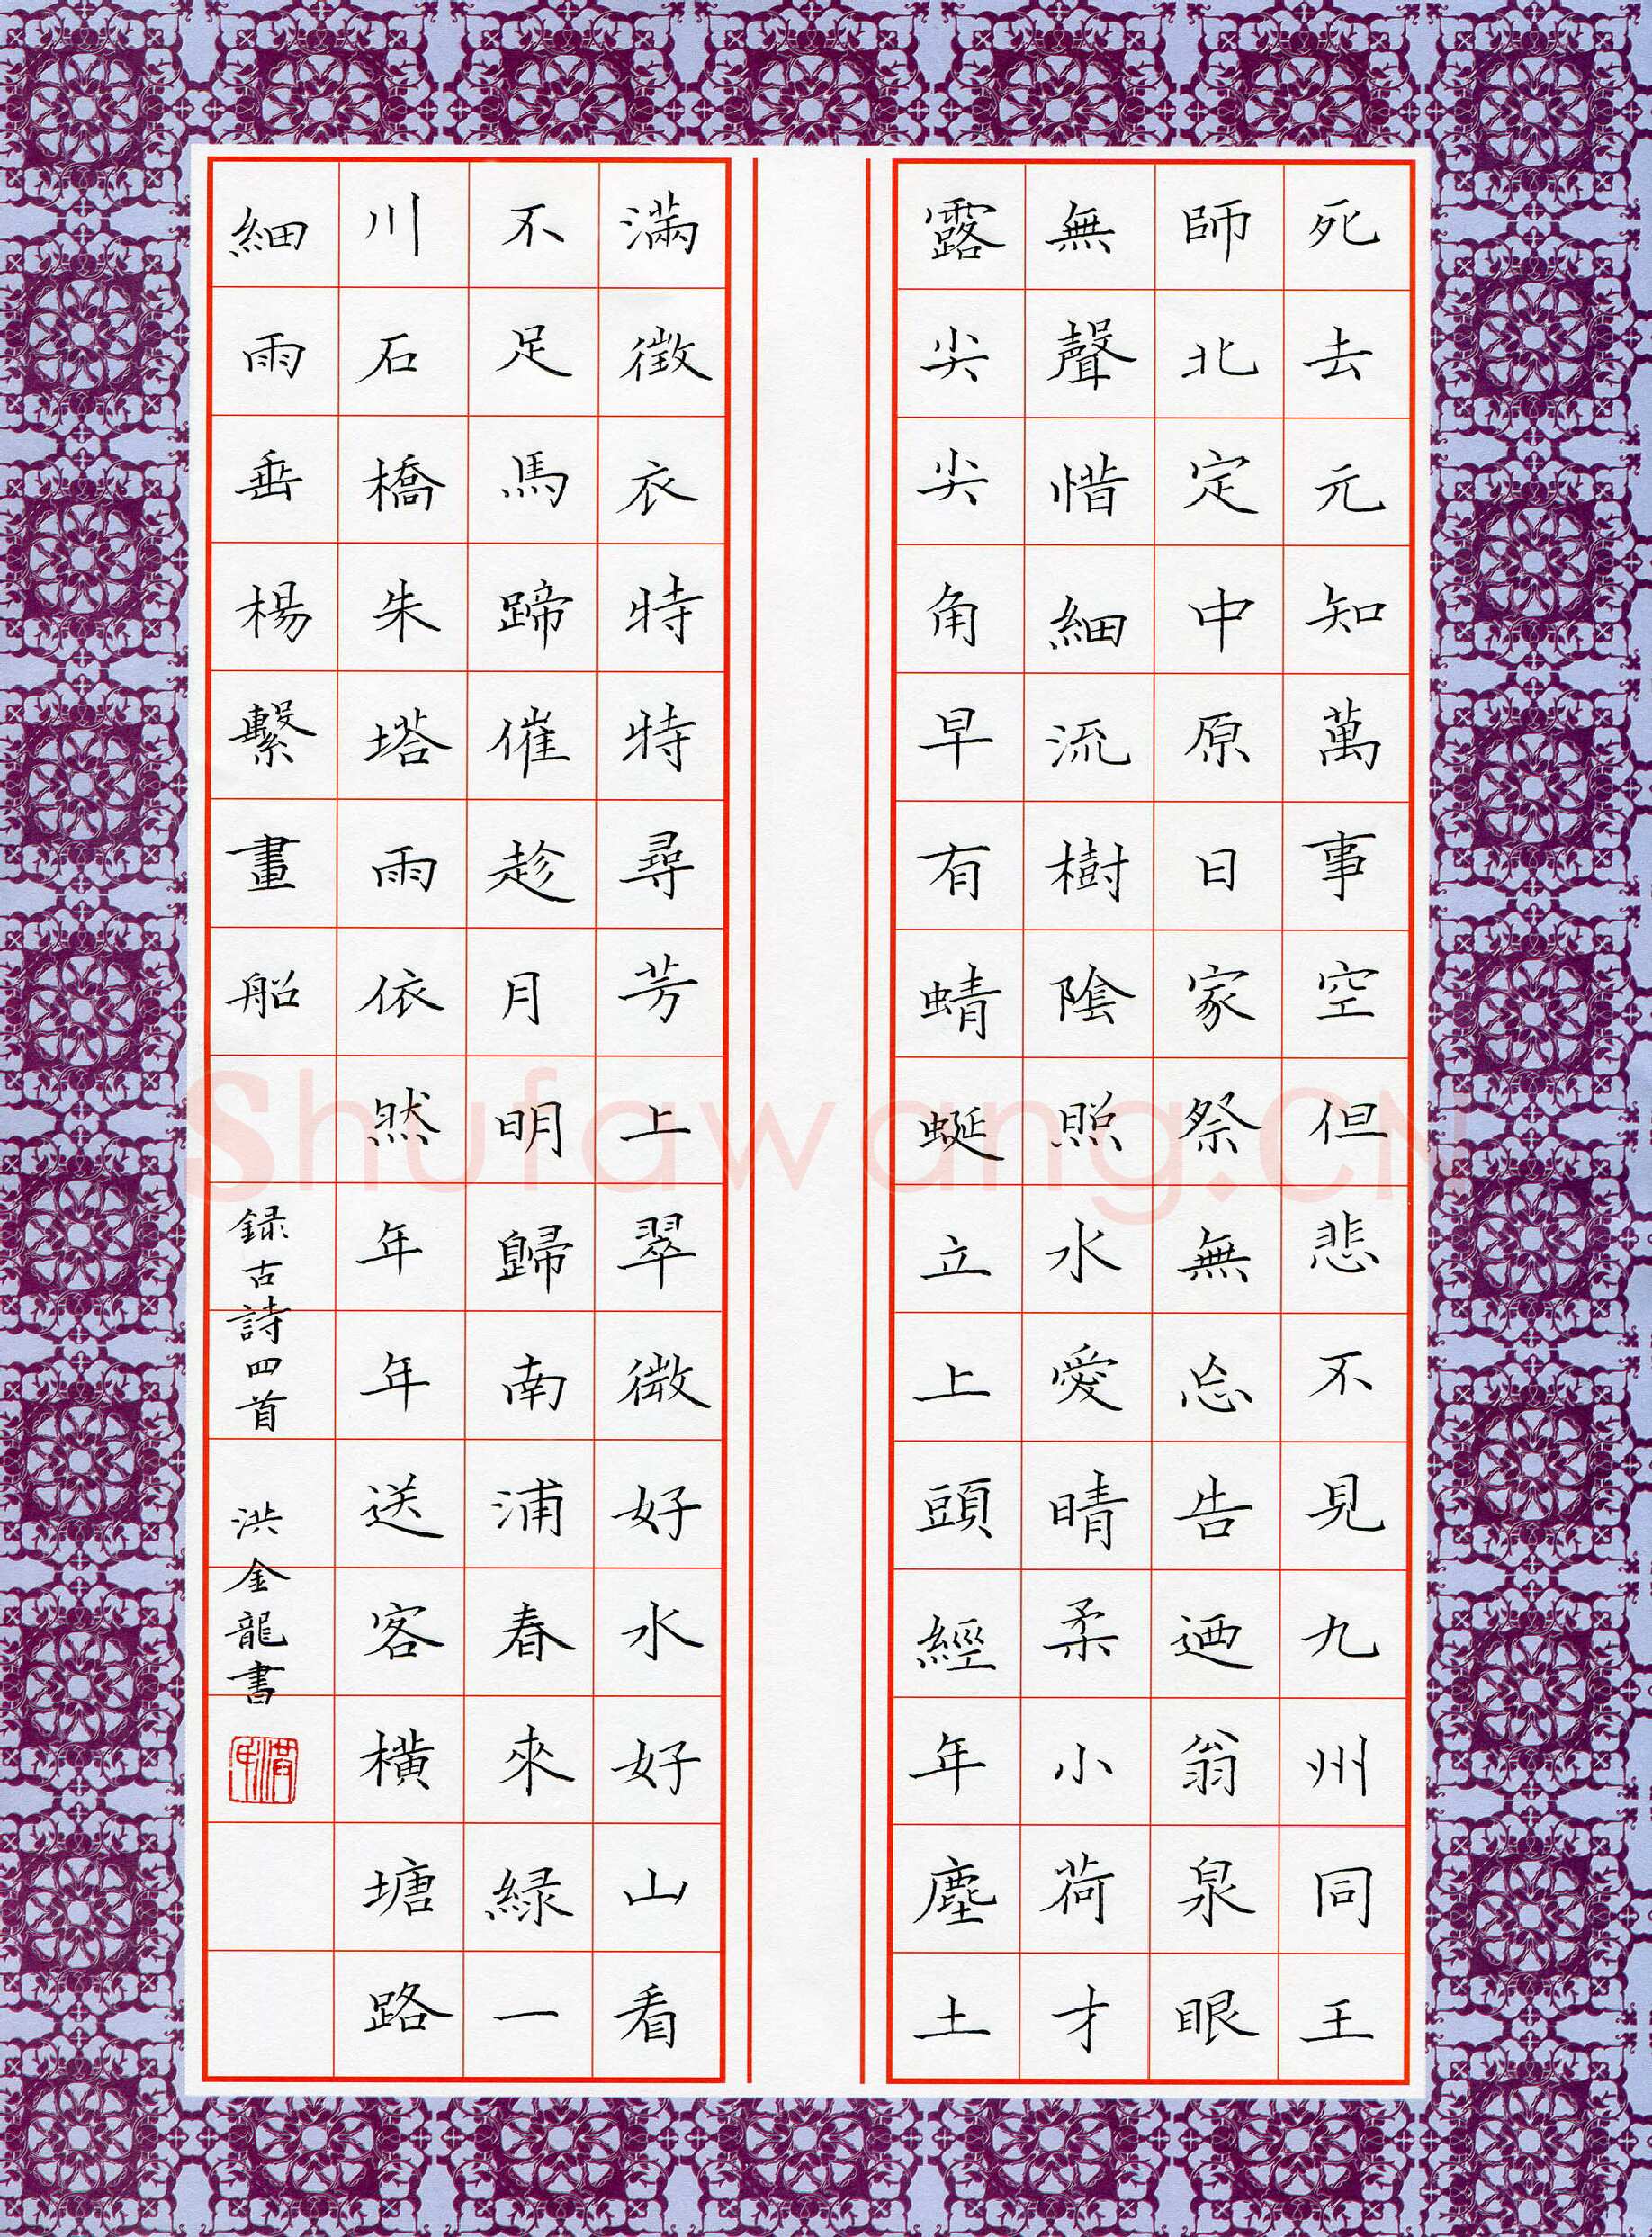 死去元知萬事空但悲不見九州同王
師北定中原日家祭無忘告迺翁泉眼
無聲惜細流樹陰照水愛晴柔小荷才
露尖尖角早有蜻蜓立上頭經年塵土
滿徵衣特特尋芳上翠微好水好山看
不足馬蹄催趁月明歸南浦春來緑一
川石橋朱塔雨依然年年送客橫塘路
細雨垂楊繫畫船
録古詩四首 洪金龍書
Shufawang.CN